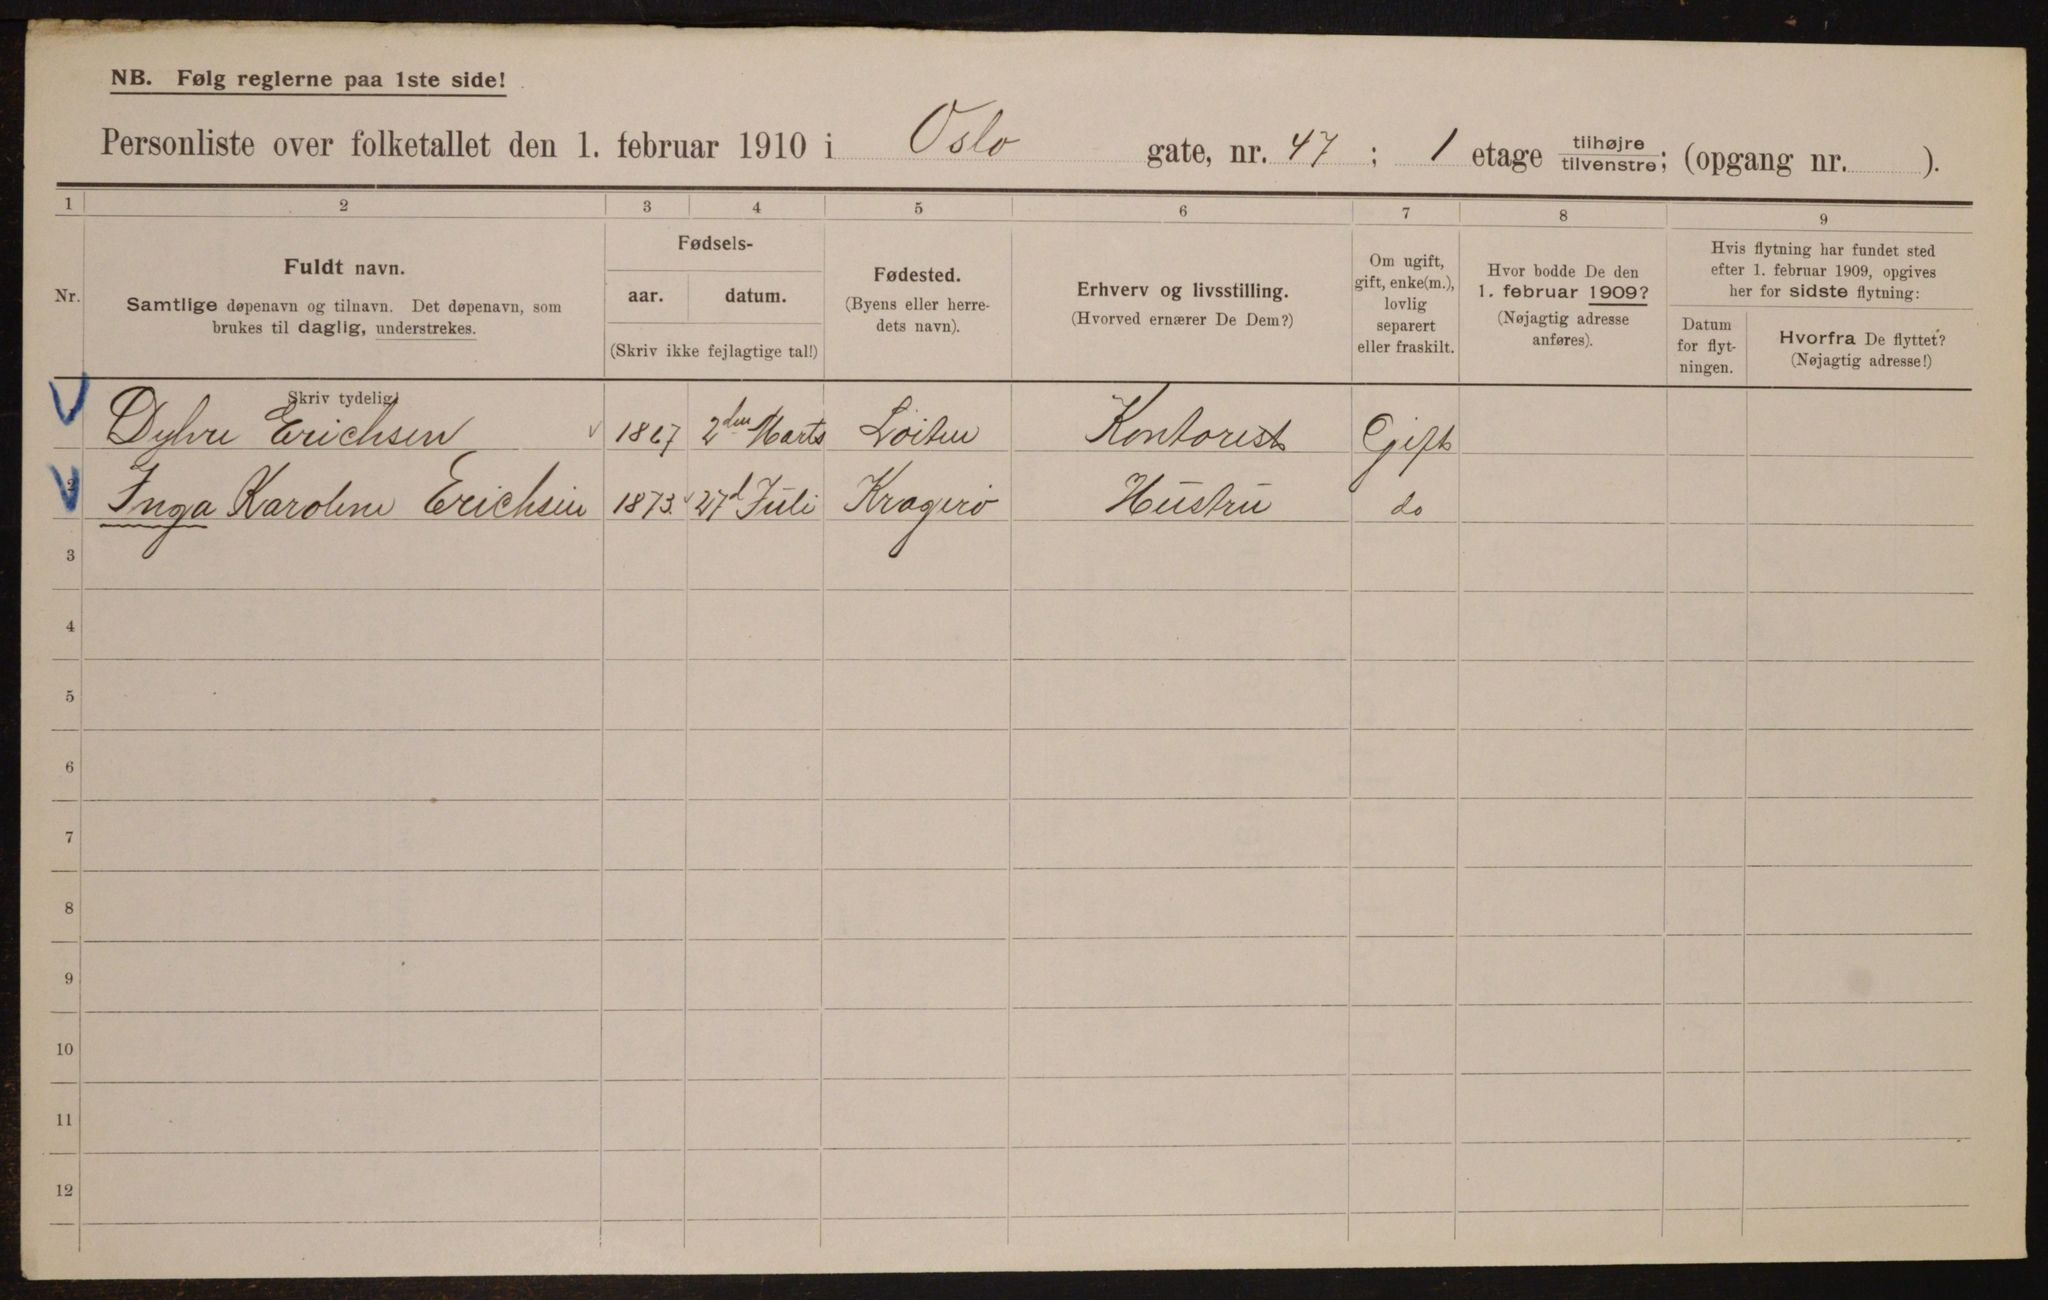 NB. Følg reglerne paa 1ste side!
Personliste over folketallet den 1. februar 1910 i Oslo gate, nr. 47 ; 1 etage tilhøjre tilvenstre; (opgang nr. ).
1 2 3 4 5 6 7 8 9
Nr.
Fuldt navn.
Samtlige døpenavn og tilnavn. Det døpenavn, som
brukes til daglig, understrekes.
Fødsels-
aar. datum.
(Skriv ikke fejlagtige tal!)
Fødested.
(Byens eller herre-
dets navn).
Erhverv og livsstilling.
(Hvorved ernærer De Dem?)
Om ugift,
gift, enke(m.),
lovlig
separert
eller fraskilt.
Hvor bodde De den
1. februar 1909?
(Nøjagtig adresse
anføres).
Hvis flytning har fundet sted
efter 1. februar 1909, opgives
her for sidste flytning:
Datum
for flyt-
ningen.
Hvorfra De flyttet?
(Nøjagtig adresse!)
Skriv tydelig!
Erichsen 1867 2den Marts Löiten Kontorist Gift
2 Inga Karoline Erichsen 1873 27d Juli Kragerö Hustru do
3
4
5
6
7
8
9
10
11
12